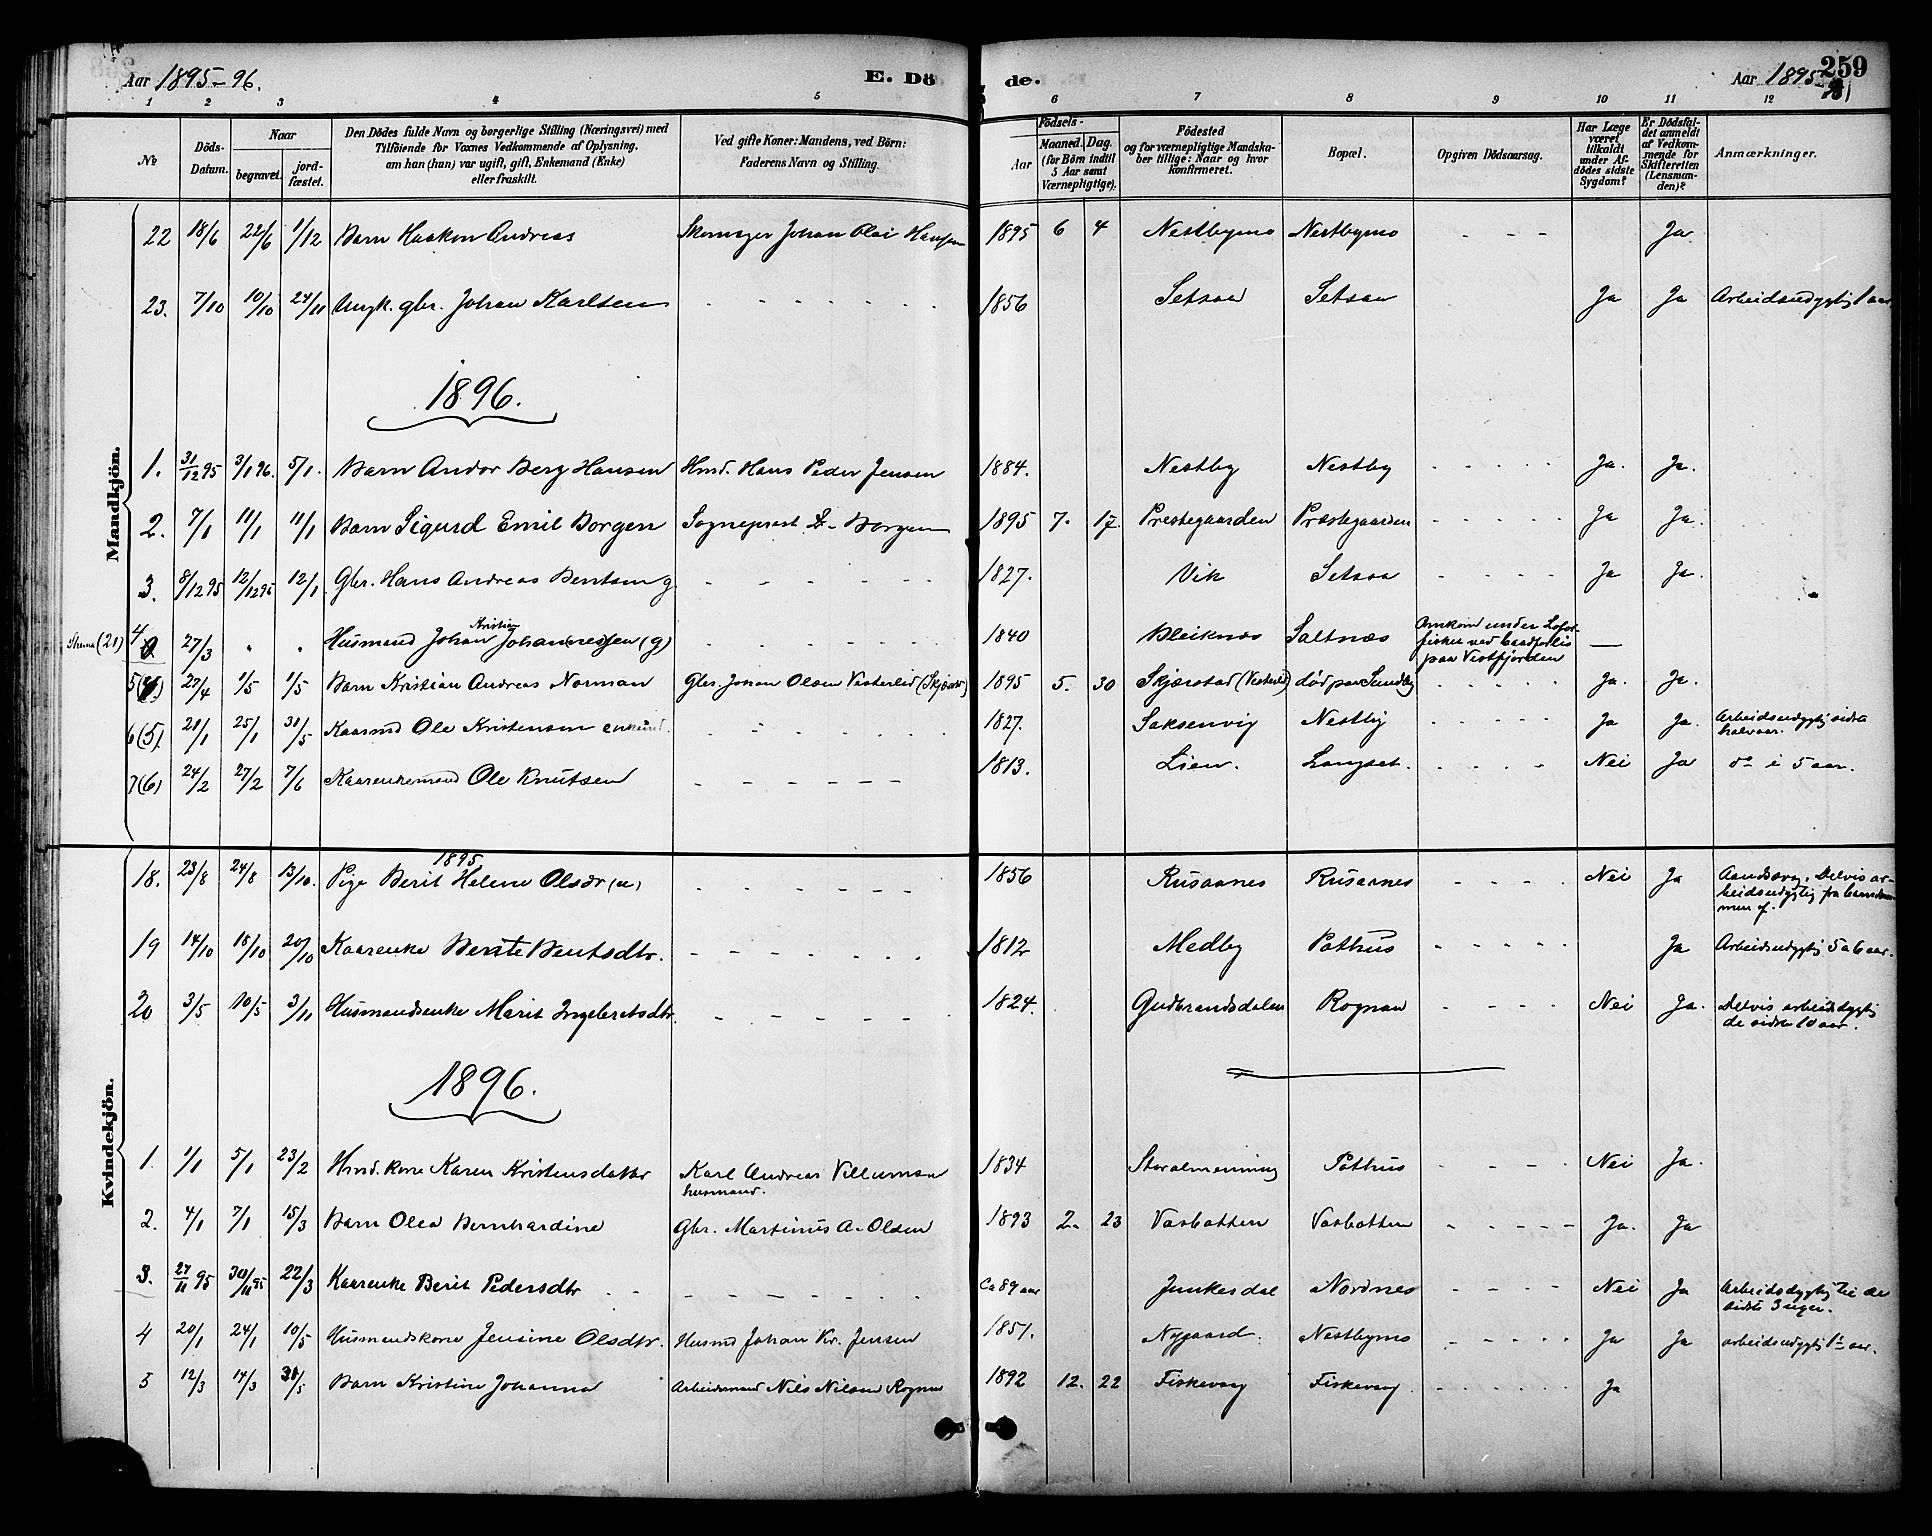 Aar 1895-96. E. Dö de. Aar 1895- 259
1 2 3 4 5 6 7 8 9 10 11 12
No Döds-Datum. Naar begravet. jord-fæstet. Den Dödes fulde Navn og borgerlige Stilling (Næringsvei) med Tilföiende for Voxnes Vedkommende af Oplysning, om han (hun) var ugift, gift, Enkemand (Enke) eller fraskilt. Ved gifte Koner: Mandens, ved Börn: Faderens Navn og Stilling. Födsels- Aar Maaned. Dag. (for Börn indtil 5 Aar samt Værnepligtige). Födested og for værnepligtige Mandskaber tillige: Naar og hvor konfirmeret. Bopæl. Opgiven Dödsaarsag. Har Læge været tilkaldt under Afdödes sidste Sygdom? Er Dödsfaldet anmeldt af Vedkommende for Skifteretten (Lensmanden)? Anmærkninger.
Mandkjön.
22 18/6 22/6 1/12 Barn Haakon Andreas Skomager Johan Olai Hansen 1895 6 4 Nestbymo Nestbymo - - - Ja
23. 7/10 10/10 24/11 Ungk. gbr. Johan Karlsen - - - 1856 Setsaa Setsaa Ja Ja Arbeidsudygtig 1 aar
1896.
1. 31/12 95 3/1 96. 5/1. Barn Andor Berg Hansen Hmd. Hans Peder Jensen 1884. Nestby Nestby - - - Ja. Ja.
2. 7/1 11/1 11/1 Barn Sigurd Emil Borgen Sogneprest L. Borgen 1895 7. 17. Prestegaarden Præstegaarden - - - Ja Ja.
3. 8/12 95 12/12 95 12/1 Gbr. Hans Andreas Bentsen g. - - - 1827. Vik Setsaa - - - Ja Ja.
(21) 4 27/3 " " Husmand Johan Kristian Johannessen (g) - - - 1840 Bleiknes Saltnæs Omkom under Lofotfisket ved baadforlis paa Vestfjorden —
5 27/4 1/5 1/5 Barn Kristian Andreas Norman Gbr. Johan Olsen Vesterlid (Skjærst) 1895 5. 30 Skjærstad (Vesterlid) død paa Sundby - - - Ja. Ja.
6 (5) 21/1 25/1 31/5 Kaarmd Ole Kristensen enkemd. - - - 1827. Saksenvig Nestby - - - Ja Ja. Arbeidsudygtig sidste halvaar.
7 (6) 24/2 27/2 7/6 Kaarenkemand Ole Knutsen - - - 1813. Lien. Langset. - - - Nei Ja do i 5 aar.
Kvindekjön.
1895
18. 23/8 24/8 13/10. Pige Berit Helene Olsdr (u) - - - 1856 Rusaanes Rusaanes - - - Nei Ja Aandssvag. Delvis arbeidsudygtig fra barndommen af.
19 14/10 18/10 20/10 Kaarenke Berite Bentsdtr. - - - 1812 Medby Pothus - - - Ja Arbeidsudygtig 5 a 6 aar.
20 3/5 10/5 3/11 Husmandsenke Marit Ingebretsdtr. - - - 1824. Gudbrandsdalen Rognan - - - Nei Ja. Delvis arbeidsdygtig de sidste 10 aar.
1896.
1. 1/1 5/1 23/2 Hmd. kone Karen Kristensdatter Karl Andreas Villumsen husmand. 1834 Storalmenning Pothus - - - Nei Ja.
2. 4/1 7/1 15/3 Barn Olea Bernhardine Gbr. Martinus A. Olsen 1893 2. 23 Vasbotten Vasbotten - - - Ja. Ja
3. 27/11 95 30/11 95 22/3 Kaarenke Berit Pedersdtr - - - Ca 89 aar Junkesdal Nordnes - - - Nei Ja Arbeidsdygtig til de sidste 3 uger.
4 20/1 24/1 10/5 Husmandskone Jensine Olsdtr. Husmd Johan Kr. Jensen 1851. Nygaard. Nestbymo - - - Ja Ja arbeidsudygtig 1½ aar.
5 12/3 14/3 31/5 Barn Kristine Johanna Arbeidsmand Nils Nilsen Rognan 1892 12. 22 Fiskevaag Fiskevaag. - - - Ja